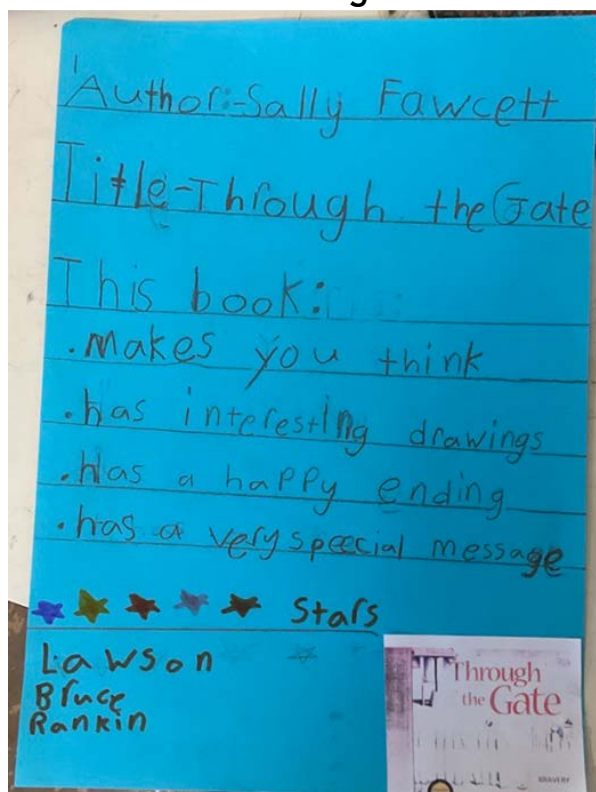 Author:-Sally Fawcett
Title-Through the Gate
This book:
.makes you think
.has interesting drawings
.Has a happy ending
.has a very speecial message
Stars
Lawson
Bruce
Rankin
Through
the Gate
BRAVERY